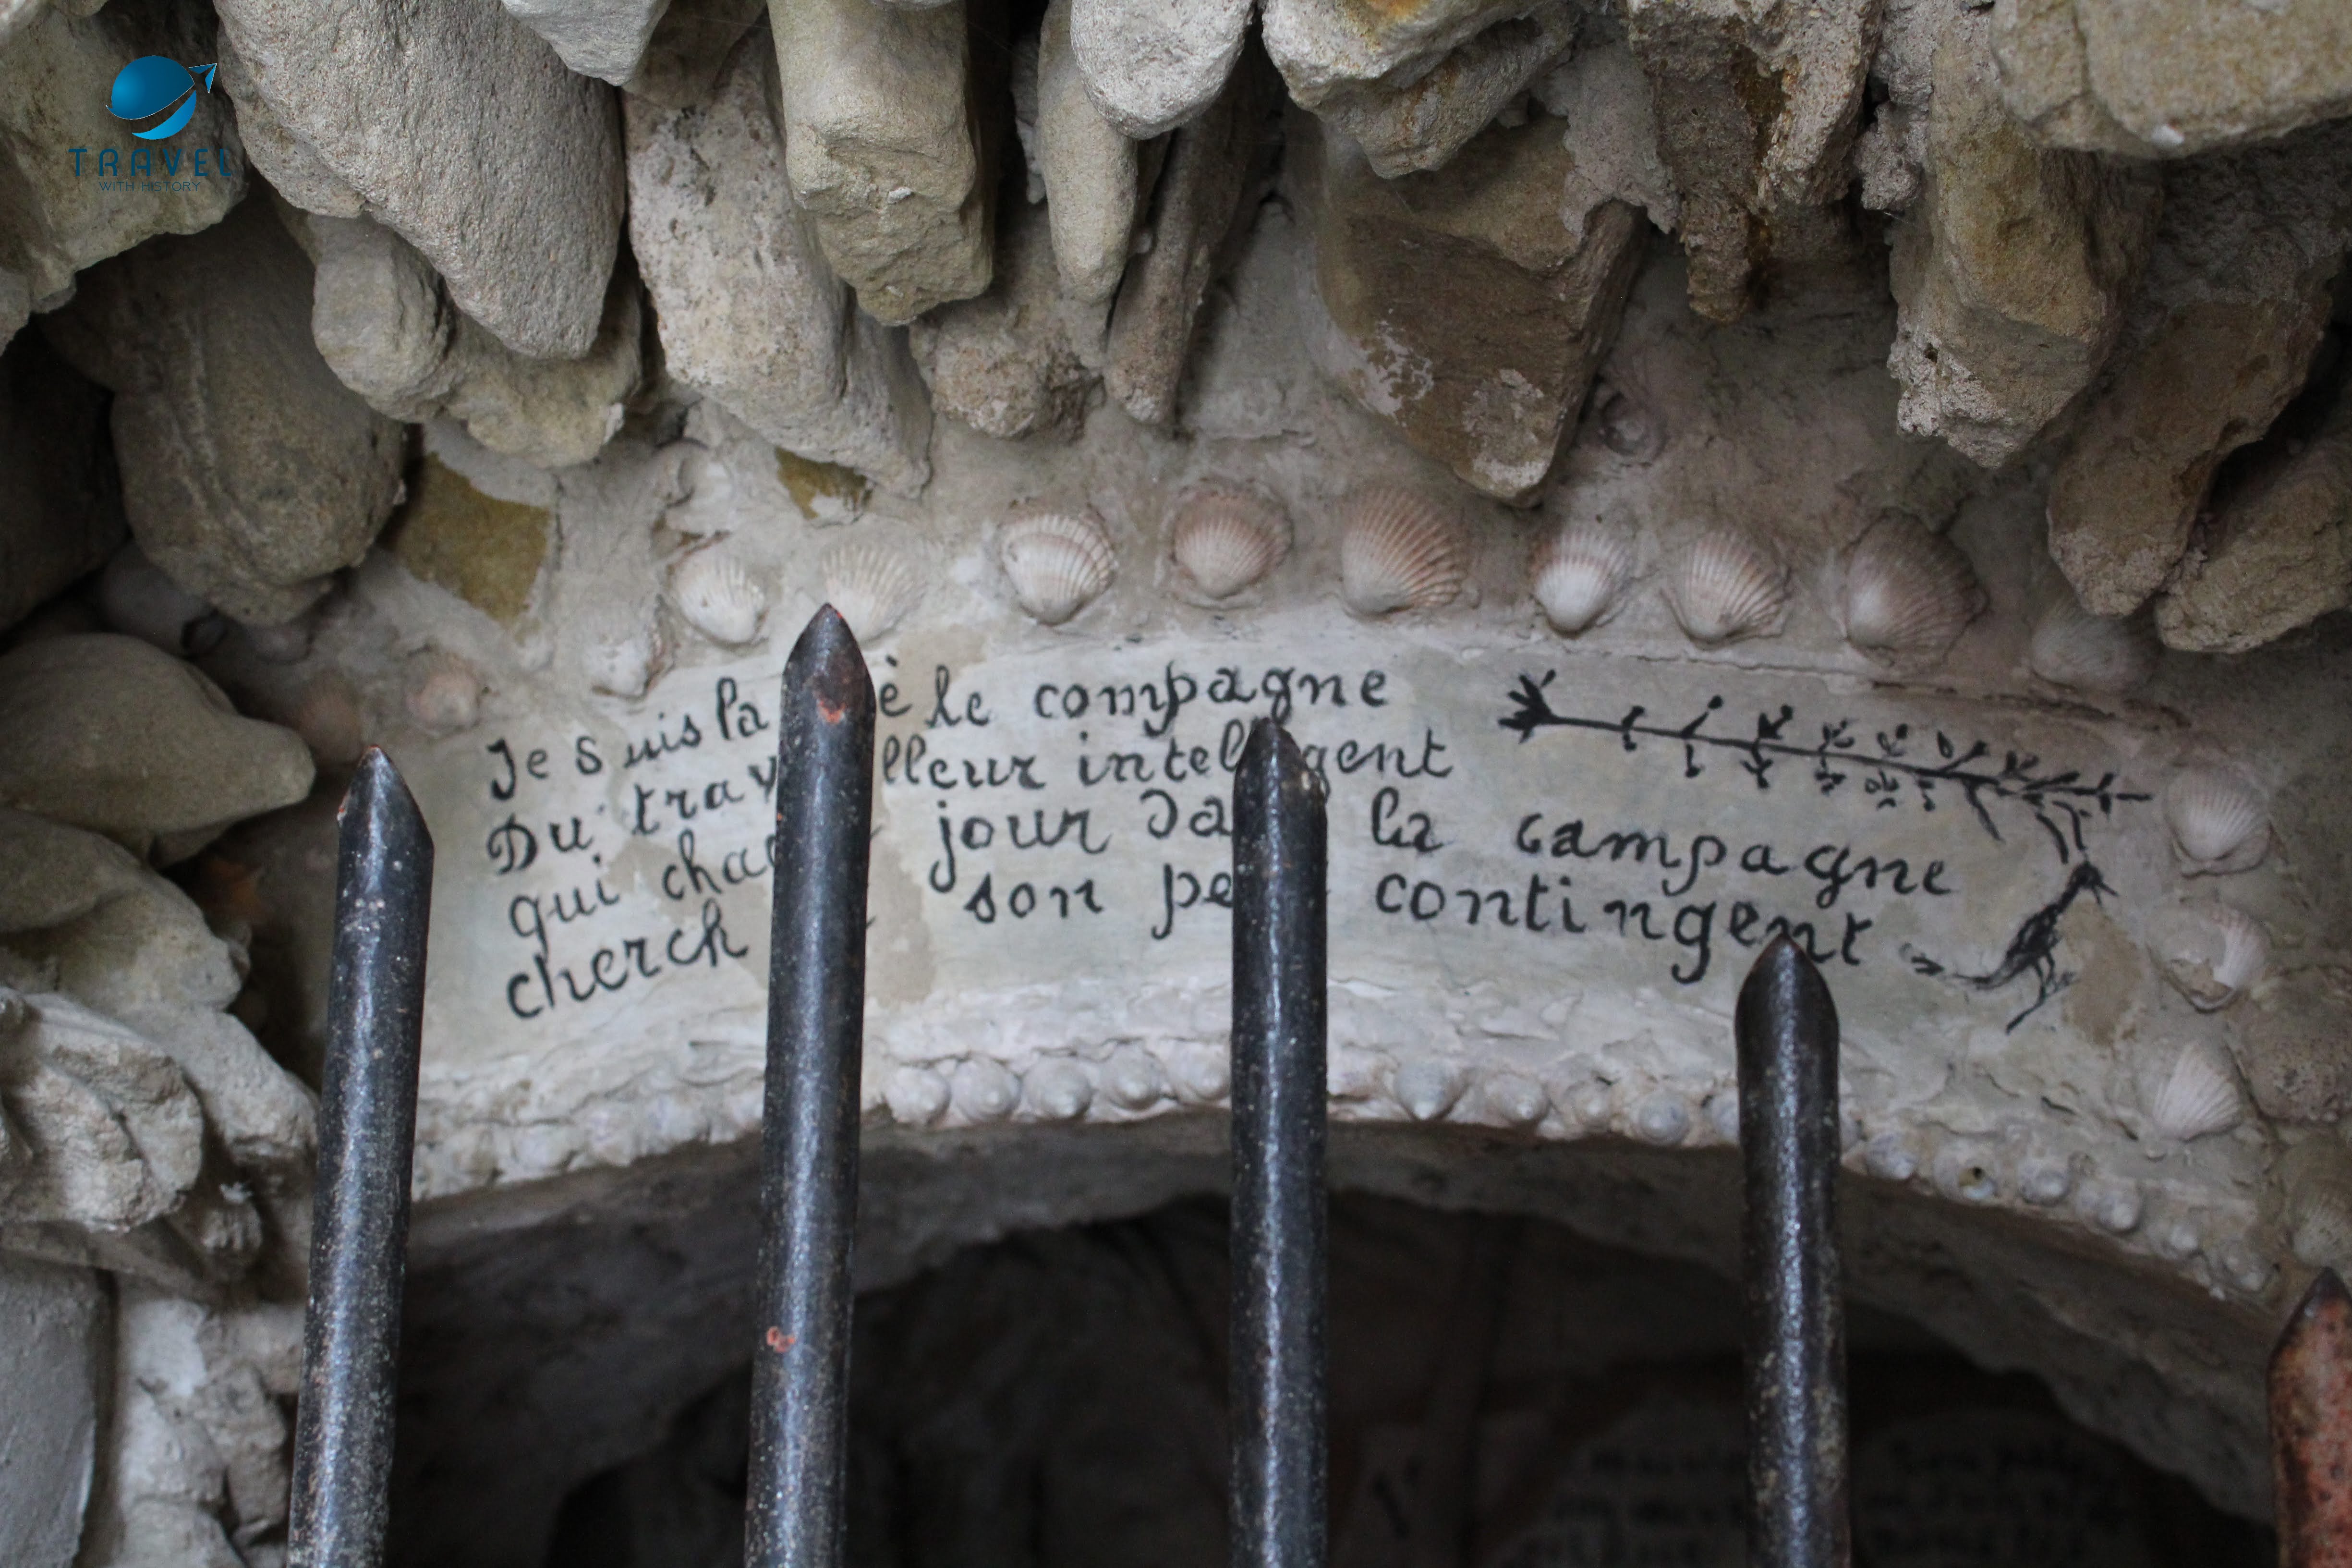 TRAVEL
WITH HISTORY
Je suis la fidèle compagne
Du travailleur intelligent
qui chaque jour dans la campagne
cherche son petit contingent